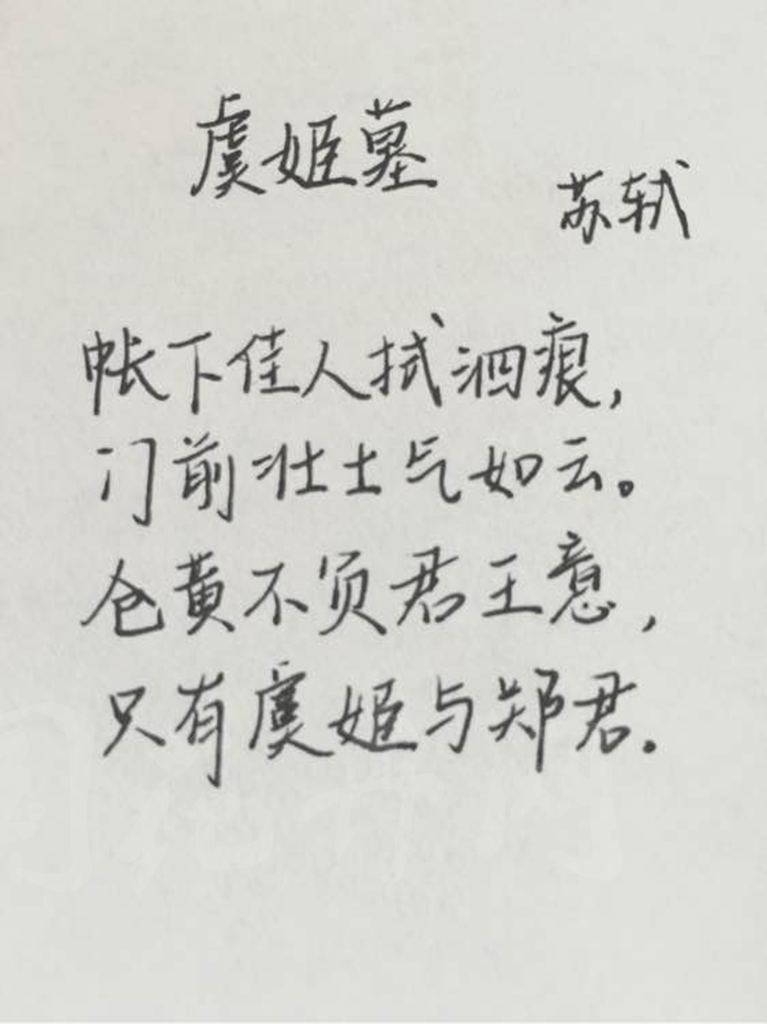 虞姬墓
苏轼
帐下佳人拭泪痕，
门前壮士气如云。
仓黄不负君王意，
只有虞姬与郑君。